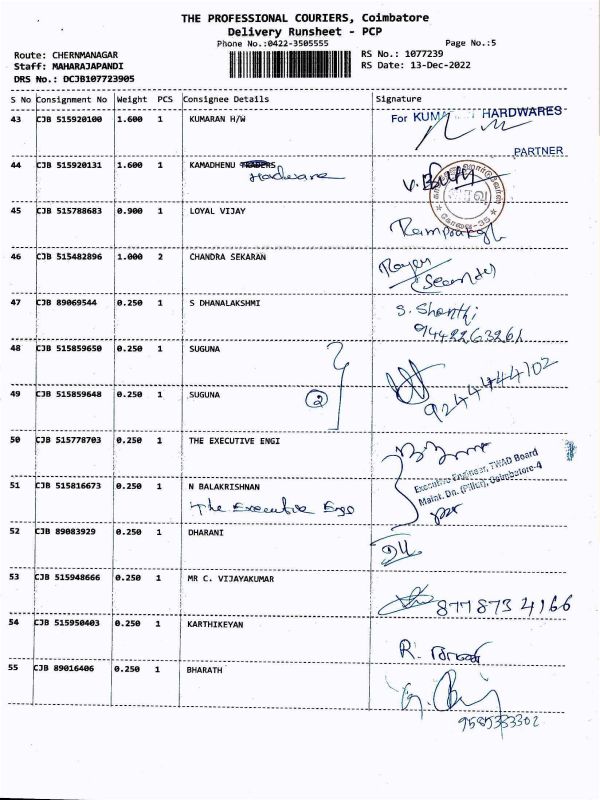 THE PROFESSIONAL COURIERS, Coimbatore
Delivery Runsheet - PCP
Phone No.:0422-3505555
Page No.:5
Route: CHERNMANAGAR
RS No.: 1077239
Staff: MAHARAJAPANDI
RS Date: 13-Dec-2022
DRS No.: DCJB107723905
S No Consignment No Weight PCS Consignee Details Signature
43 CJB 515920100 1.600 1 KUMARAN H/W
For HARDWARES
PARTNER
44 CJB 515920131 1.600 1 KAMADHENU TRADERS
Hardware
45 CJB 515788683 0.900 1 LOYAL VIJAY
46 CJB 515482896 1.000 2 CHANDRA SEKARAN
47 CJB 89069544 0.250 1 S DHANALAKSHMI
S. Shanthi
9442263261
48 CJB 515859650 0.250 1 SUGUNA
49 CJB 515859648 0.250 1 SUGUNA
2
9244444102
50 CJB 515778703 0.250 1 THE EXECUTIVE ENGI
Executive Engineer, TWAD Board
Maint. Dn. Coimbatore-4
51 CJB 515816673 0.250 1 N BALAKRISHNAN
The Executive Engo
52 CJB 89083929 0.250 1 DHARANI
53 CJB 515948666 0.250 1 MR C. VIJAYAKUMAR
8778734166
54 CJB 515950403 0.250 1 KARTHIKEYAN
55 CJB 89016406 0.250 1 BHARATH
9585333302